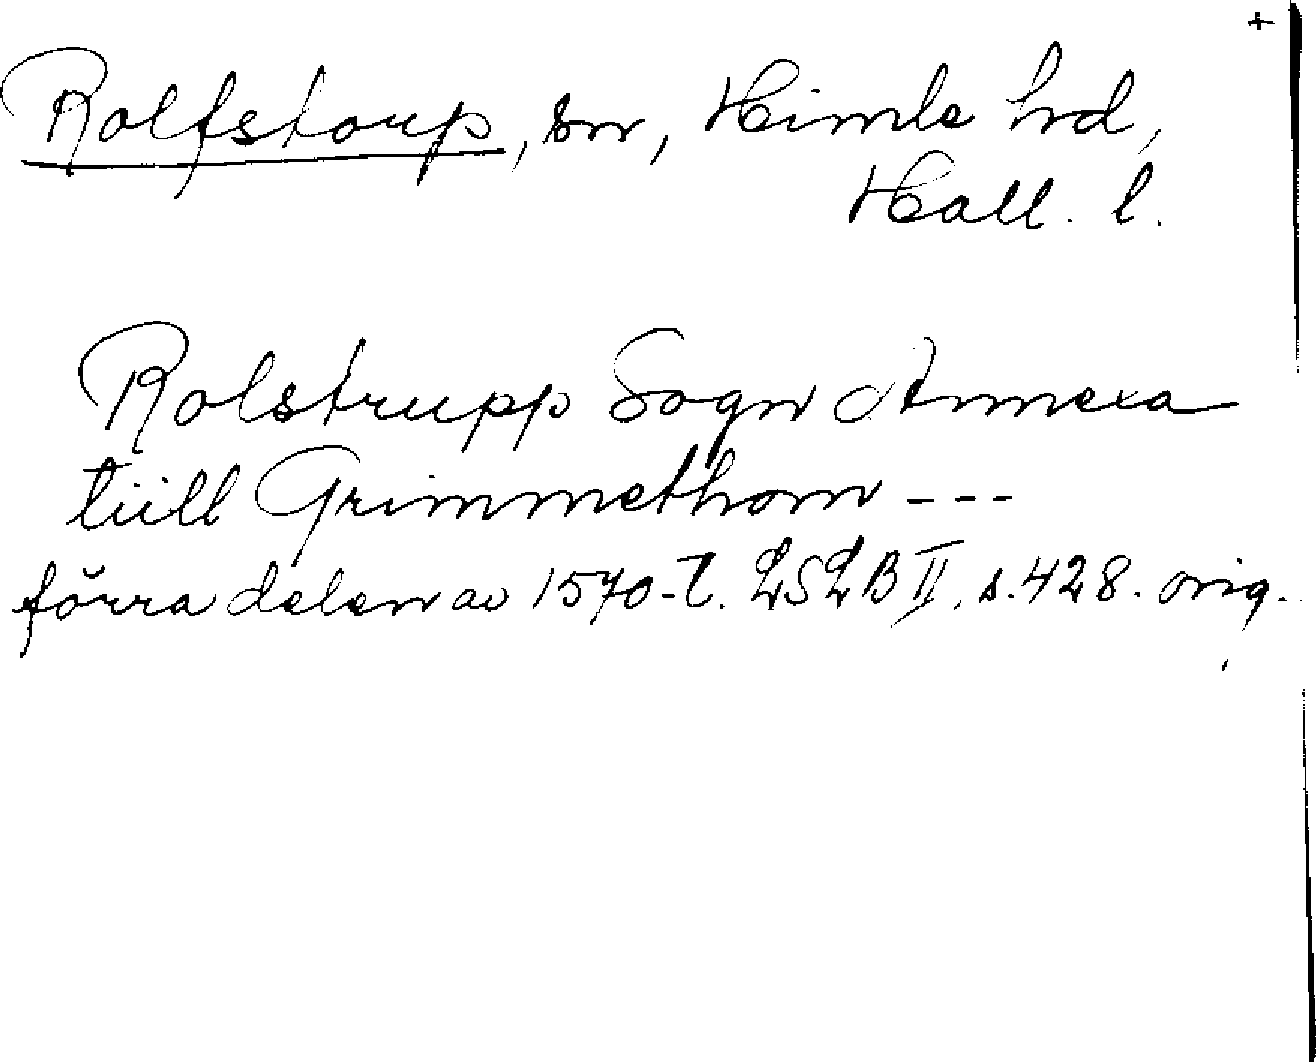 +
Rolfstorp, sn, Himle hd,
Hall. l.
Rolstrupp Sogn Annexa
tiill Grimmethom ---
förra delen av 1570-t. LSLB II, s. 428. orig.